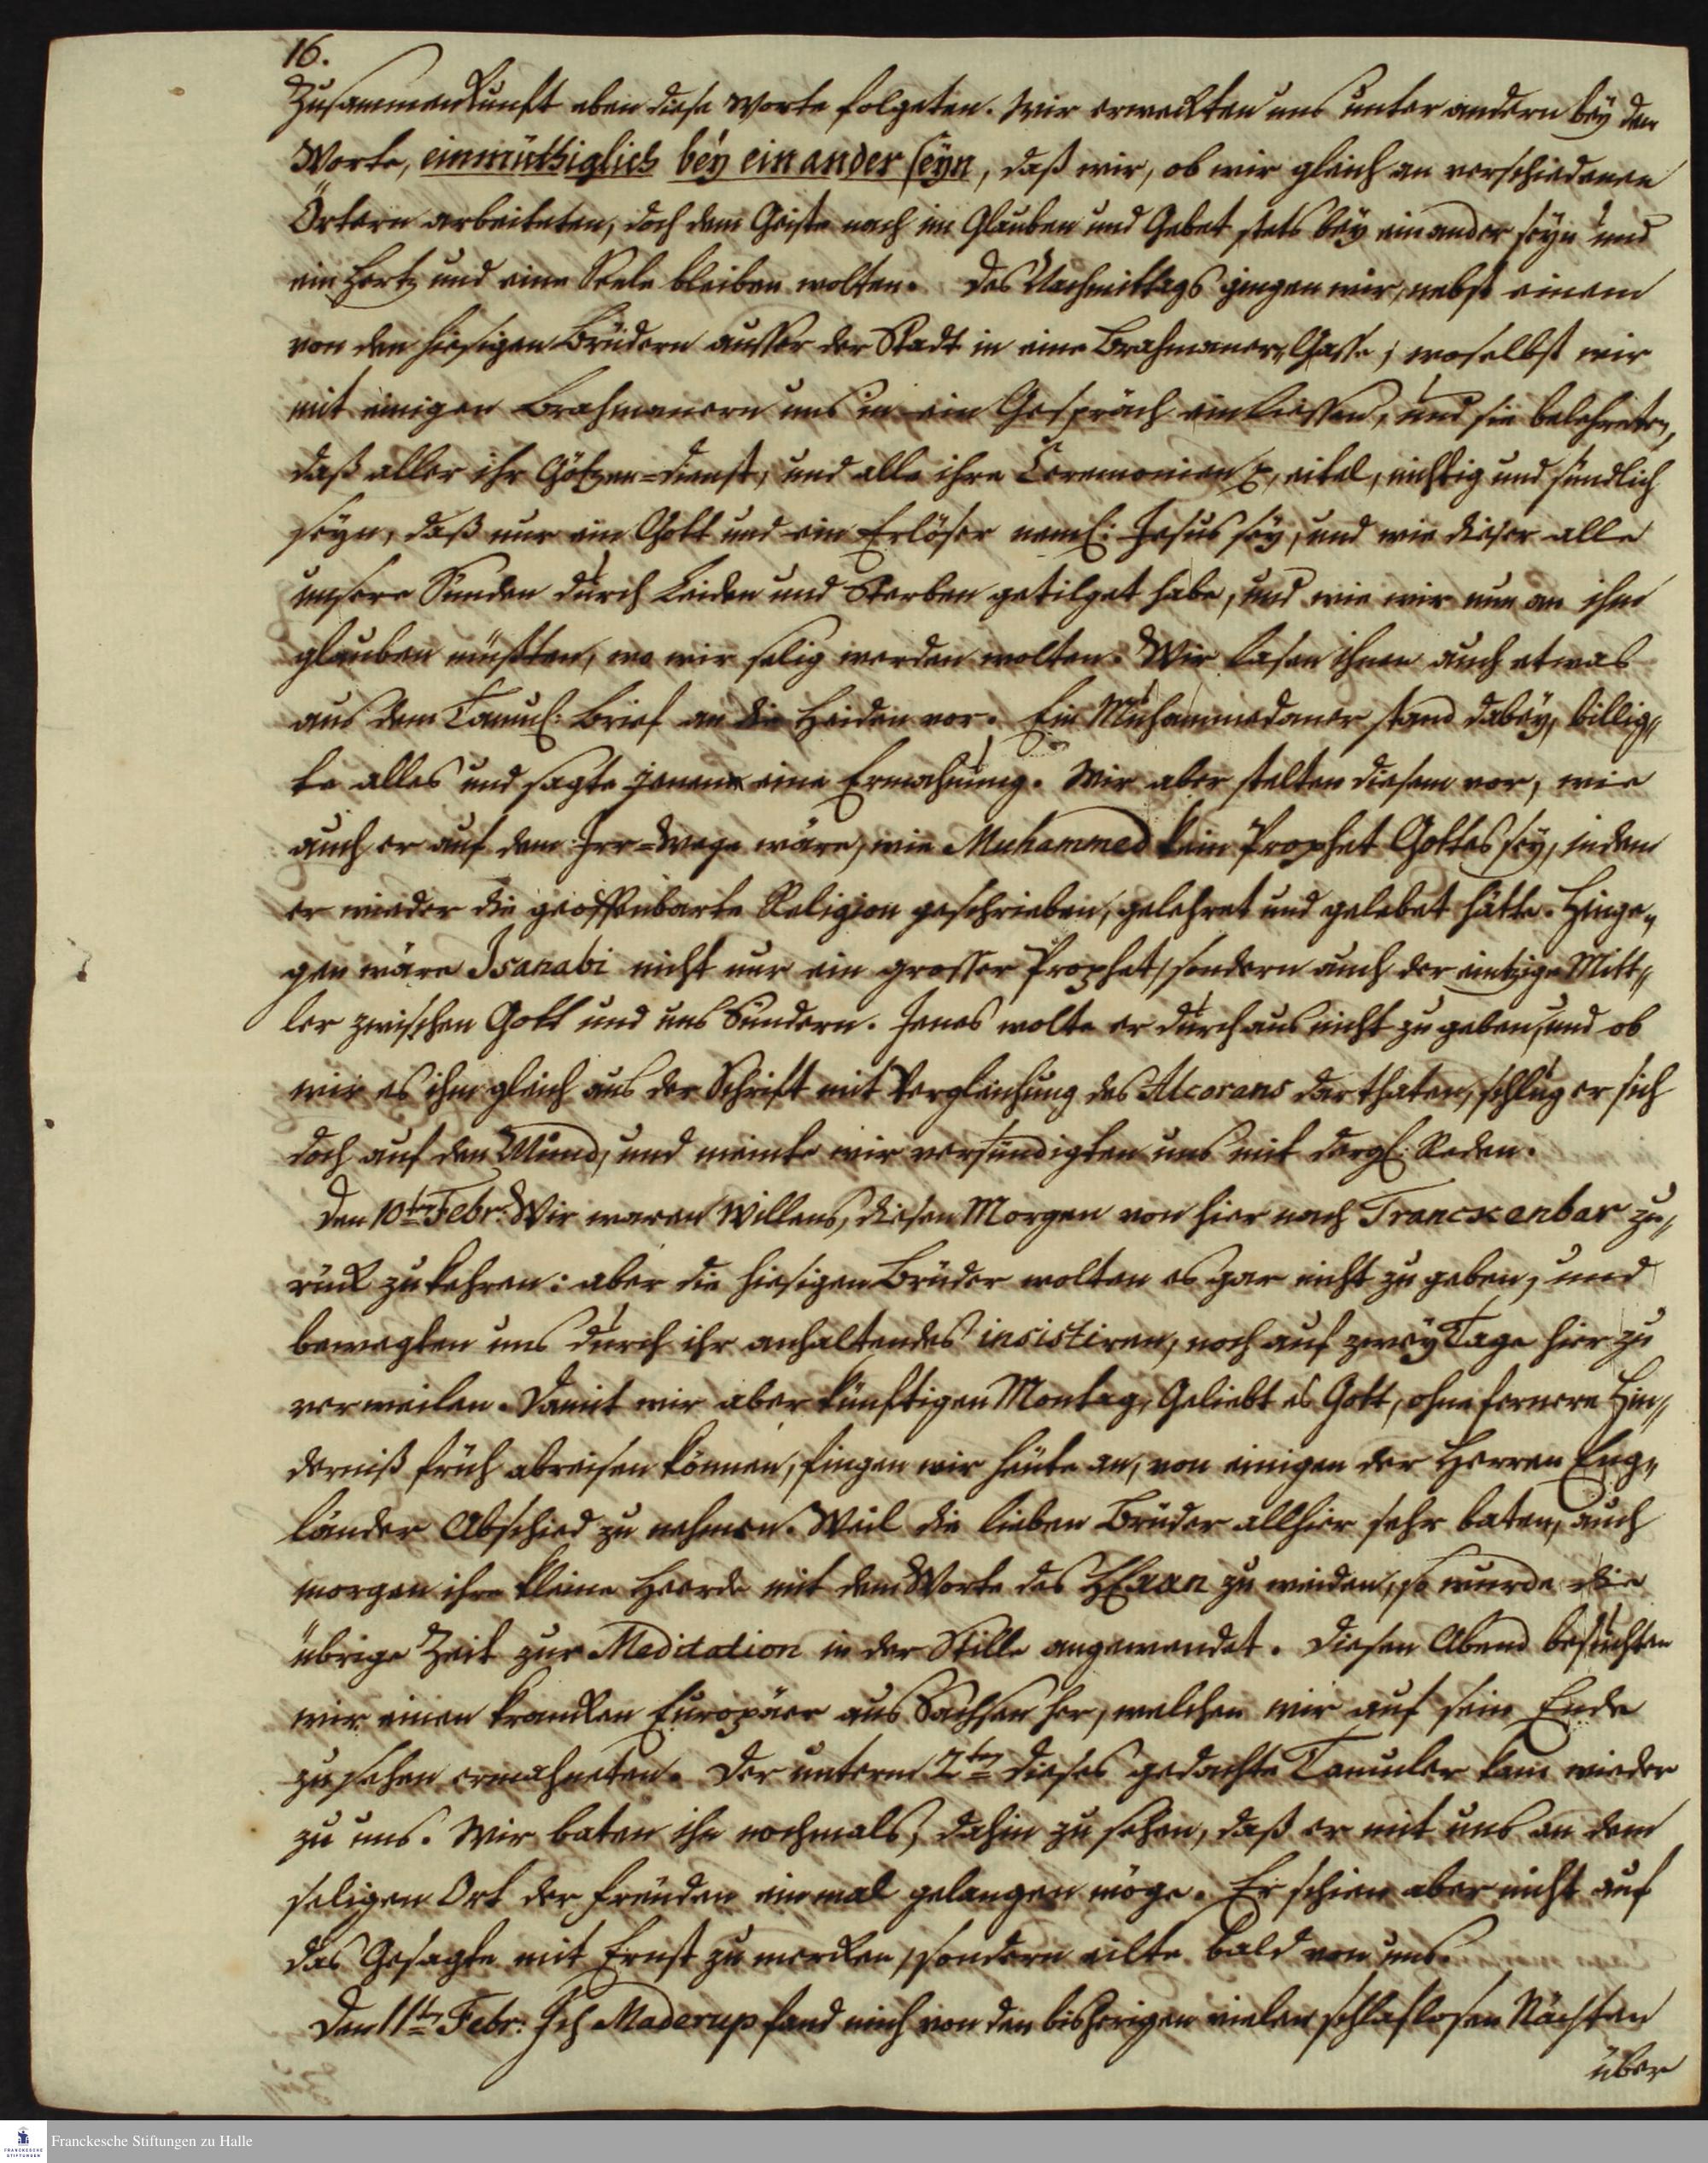 16.
Zusammenkunft eben diese Worte folgeten. Wir erweckten uns unter andern bey den
Worte, einmüthiglich bey ein ander seyn, daß wir, ob wir gleich an verschiedenen
Örtern arbeiteten, doch dem Geiste nach im Glauben und Gebet stets bey einander seyn und
ein Hertz und eine Seele bleiben wolten. Des Nachmittags gingen wir, nebst einem
von den hiesigen Brüdern ausser der Stadt in eine Brahmaner-Gasse, woselbst wir
mit einigen Brahmanern uns in ein Gespräch einliessen, und sie belehreten,
daß aller ihr Götzen=dienst, und alle ihre Ceremonien , eitel, nichtig und sündlich
seyn, daß nur ein Gott und ein Erlöser neml: Jesus sey, und wie dieser alle
unsere Sünden durch Leiden und Sterben getilget habe, und wie wir nun an ihn
glauben müssten, wo wir selig werden wolten. Wir lasen ihnen auch etwas
aus dem Tamul: Brief an die Heiden vor. Ein Muhammedaner stand dabey, billig„
te alles und sagte jenen eine Ermahnung. Wir aber stelten diesem vor, wie
auch er auf dem Irr=Wege wäre, wie Muhammed kein Prophet Gottes sey, indem
er wieder die geoffenbarte Religion geschrieben, gelehret und gelebet hätte. Hinge„
gen wäre Isanabi nicht nur ein grosser Prophet, sondern auch der eintzige Mitt„
ler zwischen Gott und uns Sündern. Jenes wolte er durchaus nicht zu geben, und ob
wir es ihm gleich aus der Schrift mit Vergleichung des Alcorans darthaten, schlug er sich
doch auf den Mund, und meinte wir versündigten uns mit dergl: Reden.
Den 10ten Febr: Wir waren Willens, diesen Morgen von hier nach Tranckenbar zu„
rück zu kehren: aber die hiesigen Brüder wolten es gar nicht zu geben, und
bewegten uns durch ihr anhaltendes insistiren, noch auf zwey Tage hier zu
verweilen. Damit wir aber künftigen Montag, Geliebt es Gott, ohne fernere Hin„
derniß früh abreisen können, fingen wir heute an, von einigen der Herren Eng„
länder Abschied zu nehmen. Weil die lieben Brüder allhier sehr baten, auch
morgen ihre kleine Heerde mit dem Worte des HErrn zu weiden, so wurde die
übrige Zeit zur Meditation in der Stille angewendet. Diesen Abend besuchten
wir einen krancken Europäer aus Sachsen her, welchen wir auf sein Ende
zu sehen ermahneten. Der unterm 2ten dieses gedachte Tamuler kam wieder
zu uns. Wir baten ihn nochmals, dahin zu sehen, daß er mit uns an dem
seligen Ort der Freuden einmal gelangen möge. Er schien aber nicht auf
das Gesagte mit Ernst zu mercken, sondern eilte bald von uns.
Den 11ten Febr: Ich Maderup fand mich von den bisherigen vielen schlaflosen Nächten
über
FRANCKESCHE STIFTUNGEN
Franckesche Stiftungen zu Halle